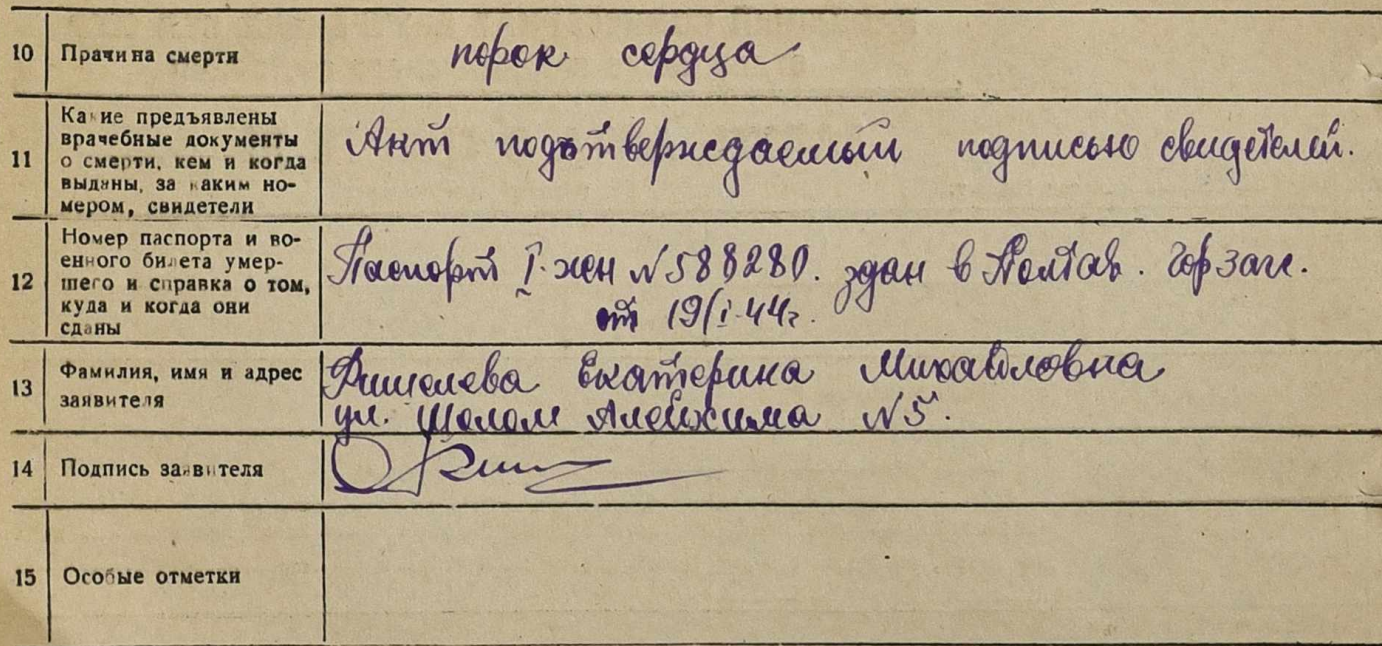 10 Причина смерти порок сердца
11 Какие предъявлены
врачебные документы
о смерти, кем и когда
выданы, за каким но-
мером, свидетели
Акт подтверждаемый подписью свидетелей.
12 Номер паспорта и во-
енного билета умер-
шего и справка о том,
куда и когда они
сданы
Паспорт I жен N 588280. здан в Полтав. Гор загс.
от 19/I-44г.
13 Фамилия, имя и адрес
заявителя
Екатерина Михайловна
ул. Шолом Алейхима N5.
14 Подпись заявителя
15 Особые отметки